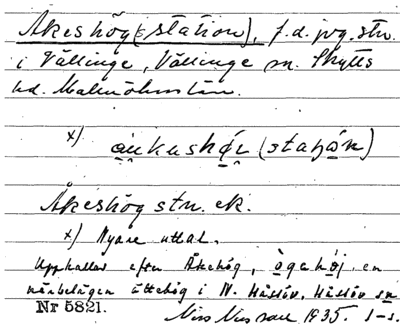 Åkeshög (station), f.d. jvg.stn.
i Vällinge, Vällinge sn. Skytts
hd. Malmöhus län.
x) áukashǫ́i (staʃǫ́n)
Åkeshög stn. ek.
x) Nyare uttal.
Upphallas efter Åkehög, ògahǫ́j, en
närbelägen ättehög i N. Håslöv, Håslöv sn
Nr 5821.
1935. 1-s.